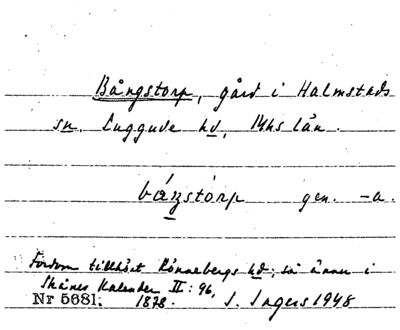 Bångstorp, gård i Halmstads
sn. Luggude hd, Mhs län.
báŋstòrp gen. -a.
Fordom tillhört Rönnebergs hd; så ännu i
Skånes Kalender II: 96,
Nr 5681. 1878. I. Ingers 1948